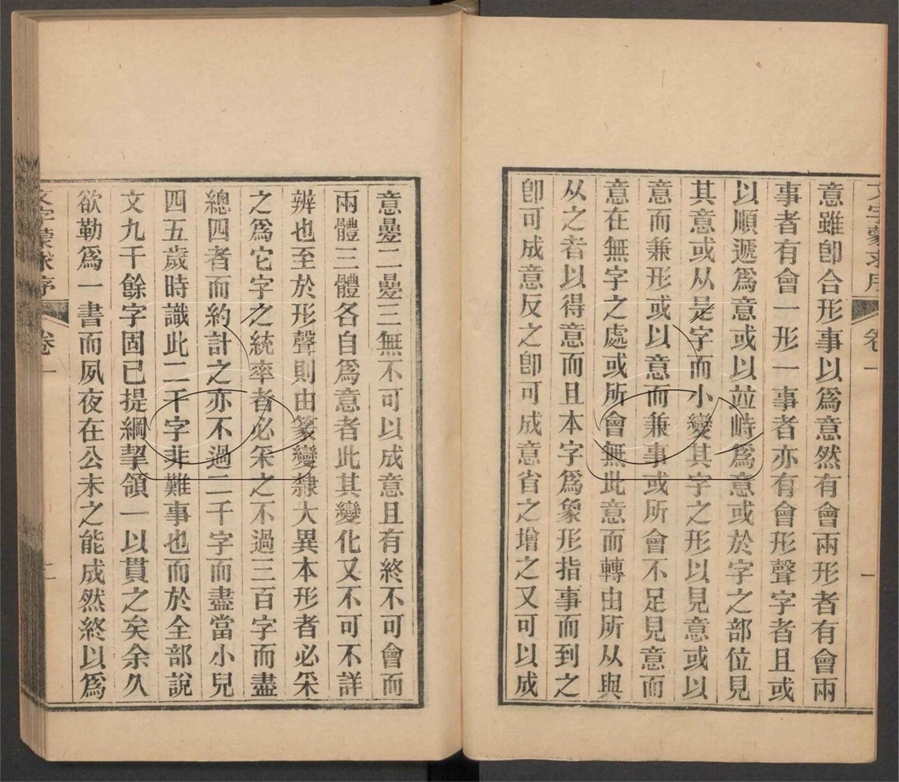 文字蒙求序 卷一 一
意雖卽合形事以爲意然有會兩形者有會兩
事者有會一形一事者亦有會形聲字者且或
以順遞爲意或以竝峙爲意或於字之部位見
其意或从是字而小變其字之形以見意或以
意而兼形或以意而兼事或所會不足見意而
意在無字之處或所會無此意而轉由所从與
从之者以得意而且本字爲象形指事而到之
卽可成意反之卽可成意省之增之又可以成
意曡二曡三無不可以成意且有終不可會而
兩體三體各自爲意者此其變化又不可不詳
辨也至於形聲則由篆變隸大異本形者必采
之爲它字之統率者必采之不過三百字而盡
總四者而約計之亦不過二千字而盡當小兒
四五歲時識此二千字非難事也而於全部說
文九千餘字固已提綱挈領一以貫之矣余久
欲勒爲一書而夙夜在公未之能成然終以爲
文字蒙求序 卷一 二